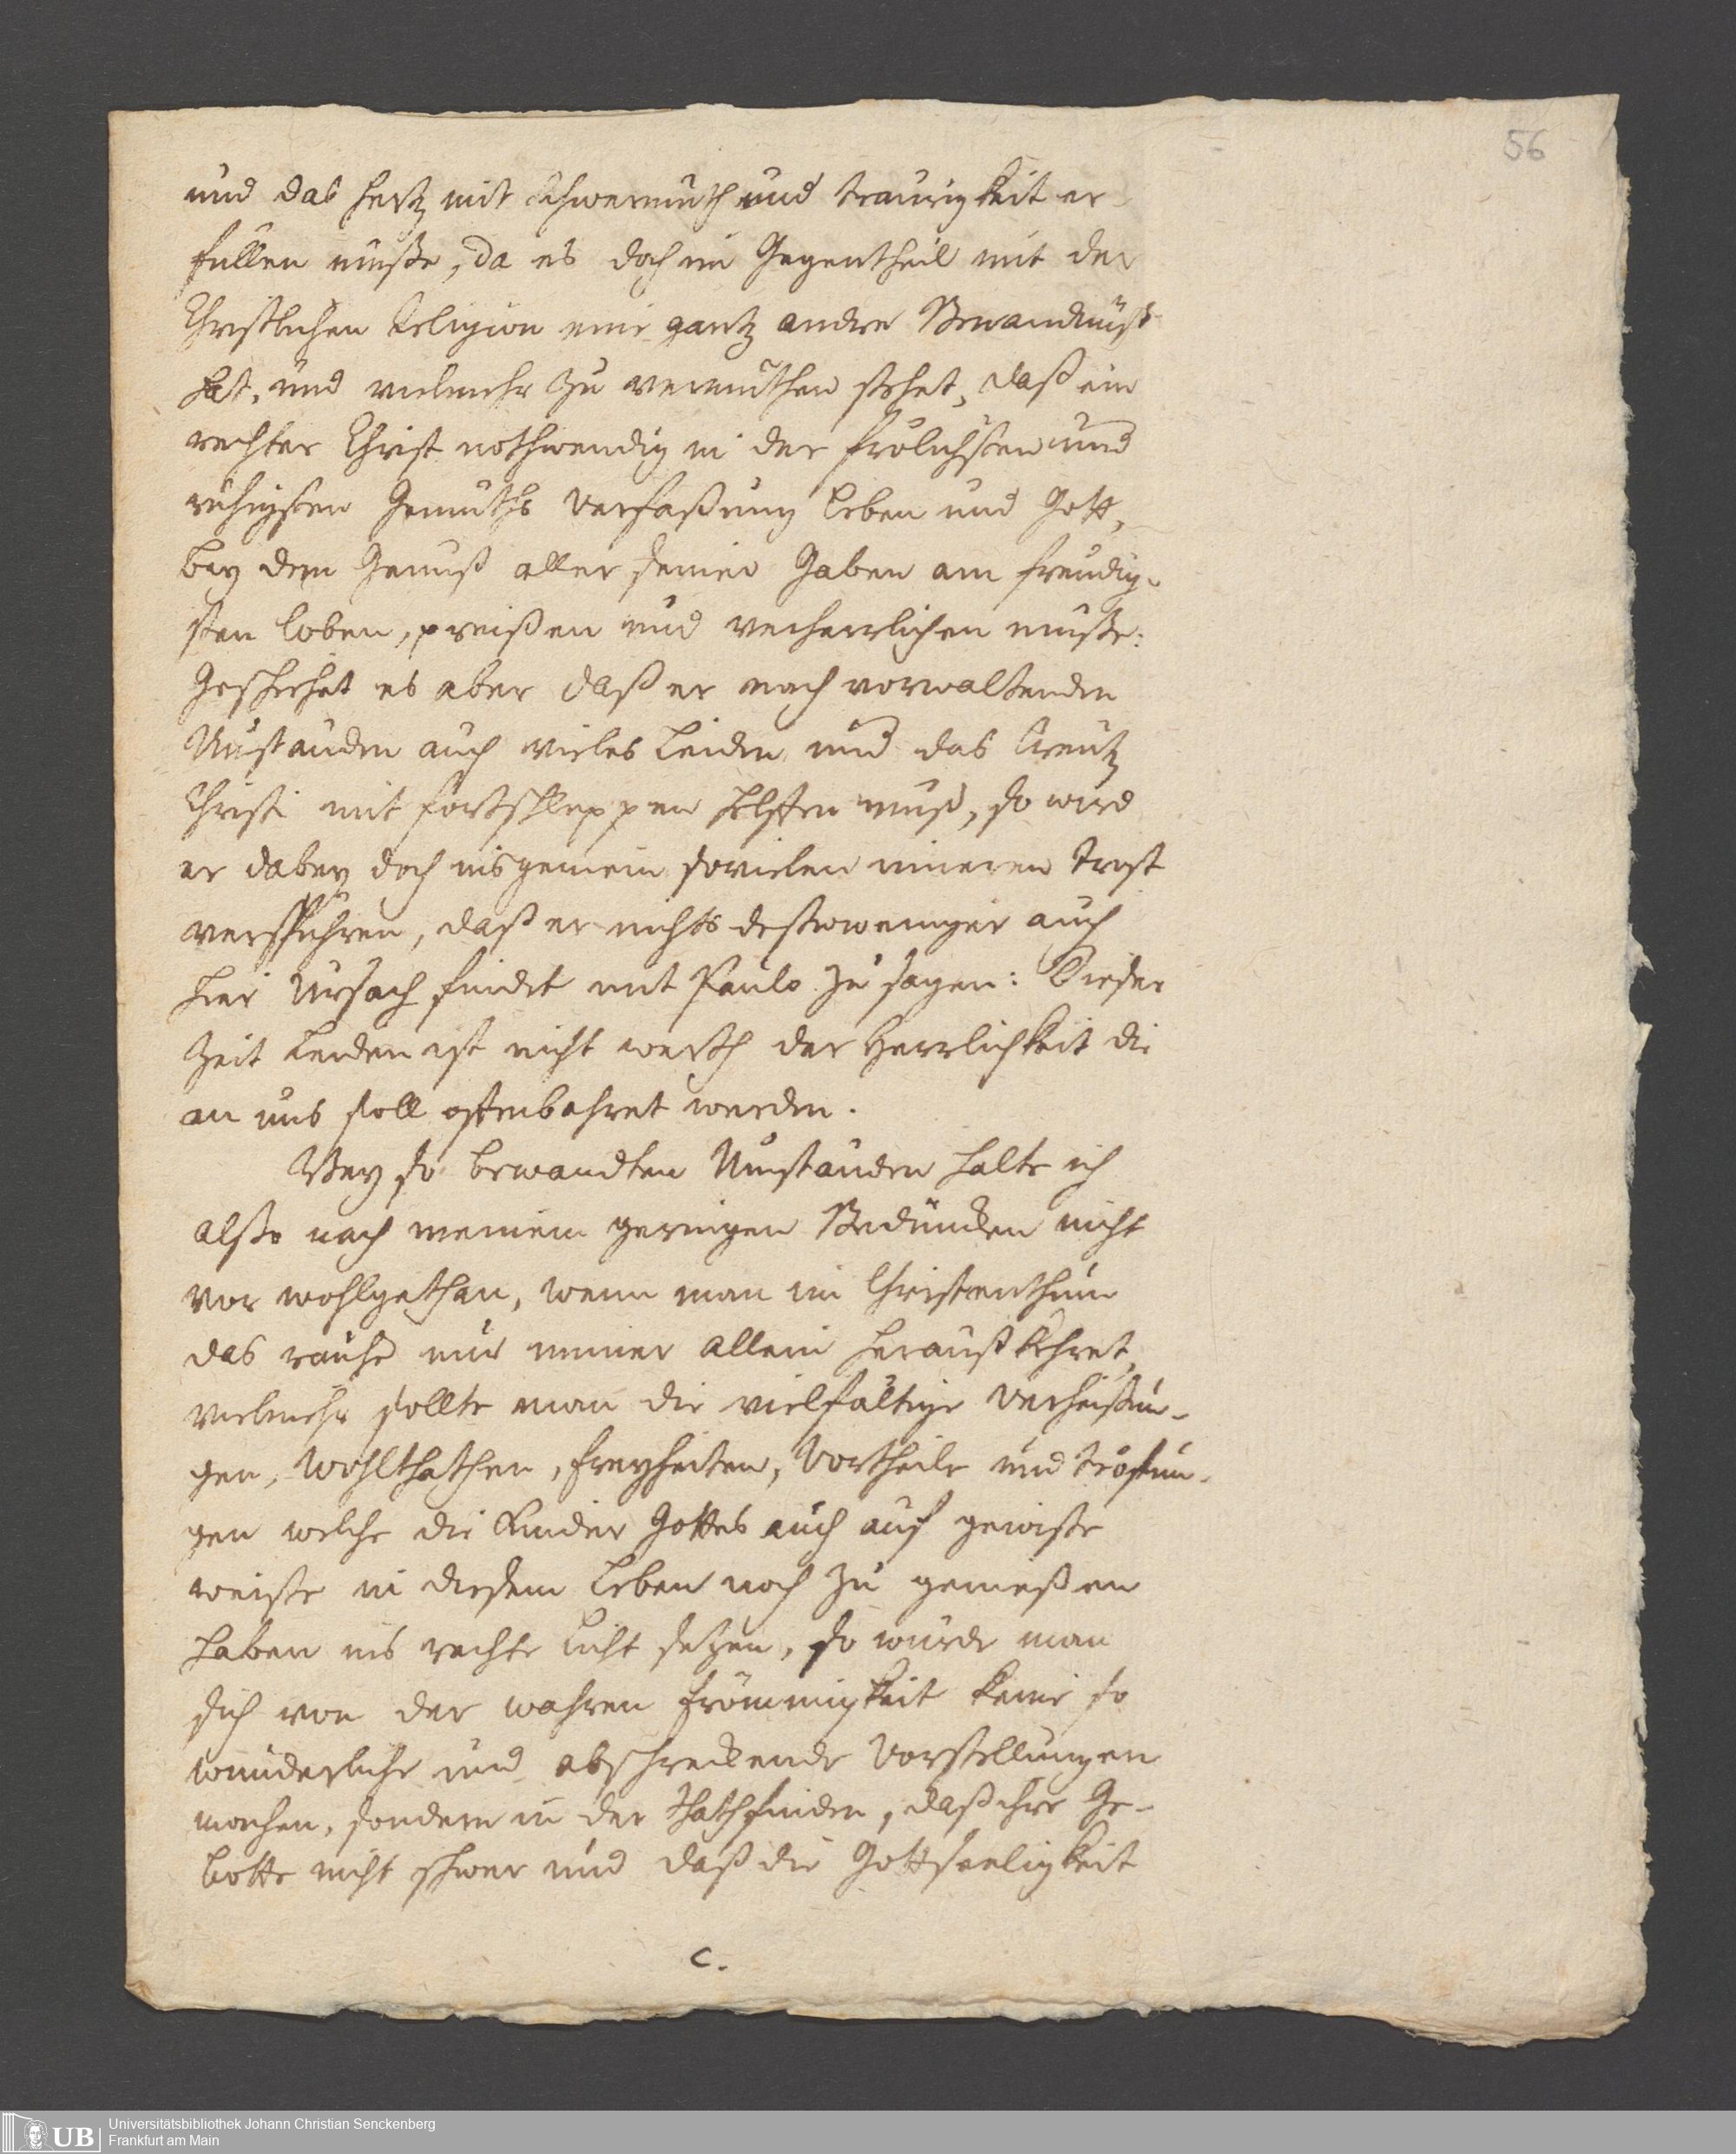 56
und das hertz mit schwermuth und traurigkeit er-
füllen müße, da es doch im Gegentheil mit der
Christlichen Religion eine gantz andre Bewandnüß
hat, und vielmehr zu vermuthen stehet, daß ein
rechter Christ nothwendig in der frölichsten und
ruhigsten Gemüths Verfaßung leben und Gott,
bey dem Genuß aller seiner Gaben am freudig-
sten loben, preißen und verherrlichen müße:
Geschiehet es aber daß er nach vorwaltenden
Umständen auch vieles Leiden und das Creutz
Christi mit fortschleppen helffen muß, so wird
er dabey doch insgemein sovielen inneren trost
verspühren, daß er nichts destoweniger auch
hier Ursach findet mit Paulo zu sagen: Dieser
Zeit Leiden ist nicht werth der Herrlichkeit die
an uns soll offenbahret werden.
Bey so bewandten Umständen halte ich
also nach meinem geringen Bedüncken nicht
vor wohlgethan, wenn man im Christenthum
das rauhe nur immer allein herauß kehret,
vielmehr sollte man die vielfältige Verheißun-
gen, Wohlthathen, freyheiten, Vortheile und tröstun-
gen welche die Kinder Gottes auch auf gewiße
weiße in diesem Leben noch zu genießen
haben ins rechte Licht setzen, so würde man
sich von der wahren frömmigkeit keine so
wunderliche und abschreckende Vorstellungen
machen, sondern in der that finden, daß ihre Ge-
botte nicht schwer und daß die Gottseeligkeit
C.
UB
Universitätsbibliothek Johann Christian Senckenberg
Frankfurt am Main